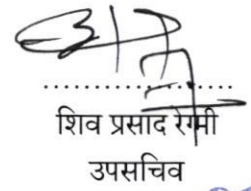 शिव प्रसाद रेग्मी
उपसचिव